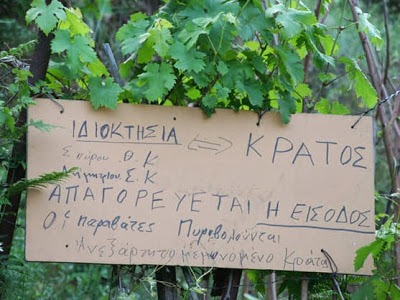 ΙΔΙΟΚΤΗΣΙΑ ⇔ ΚΡΑΤΟΣ
Σπύρου Θ. Κ
Δημητρίου Σ. Κ
ΑΠΑΓΟΡΕΥΕΤΑΙ Η ΕΙΣΟΔΟΣ
Οι παραβάτες Πυροβολούνται
Ανεξάρτητο